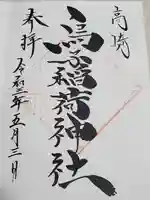 高崎
烏子稲荷神社
奉拝
令和二年五月三日